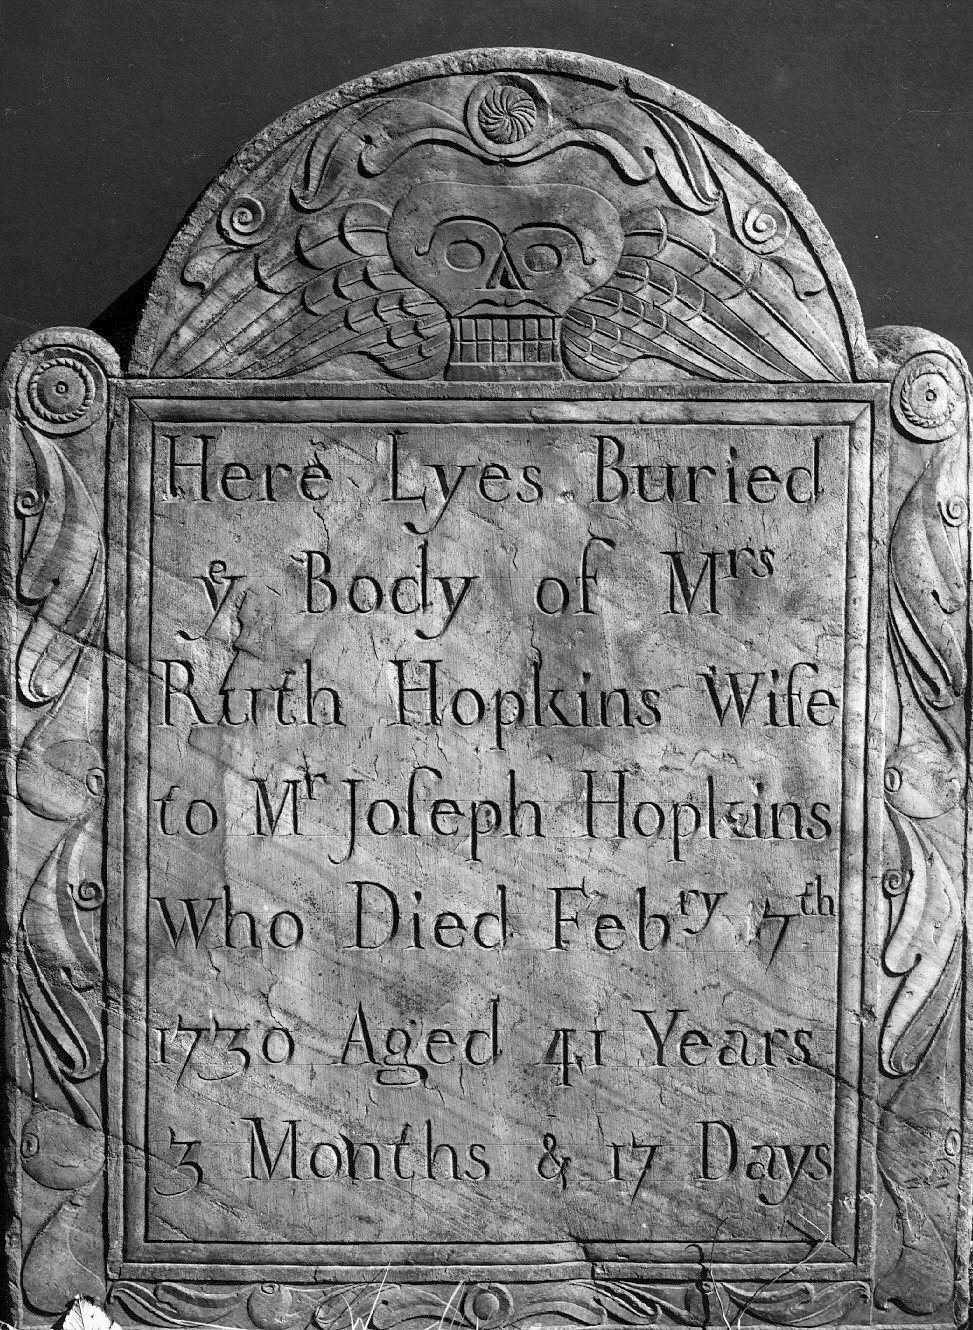 Here Lyes Buried
yᵉ Body of Mʳˢ
Ruth Hopkins Wife
to Mʳ Joſeph Hopkins
Who Died Febʳʸ 7ᵗʰ
1730 Aged 41 Years
3 Months & 17 Days